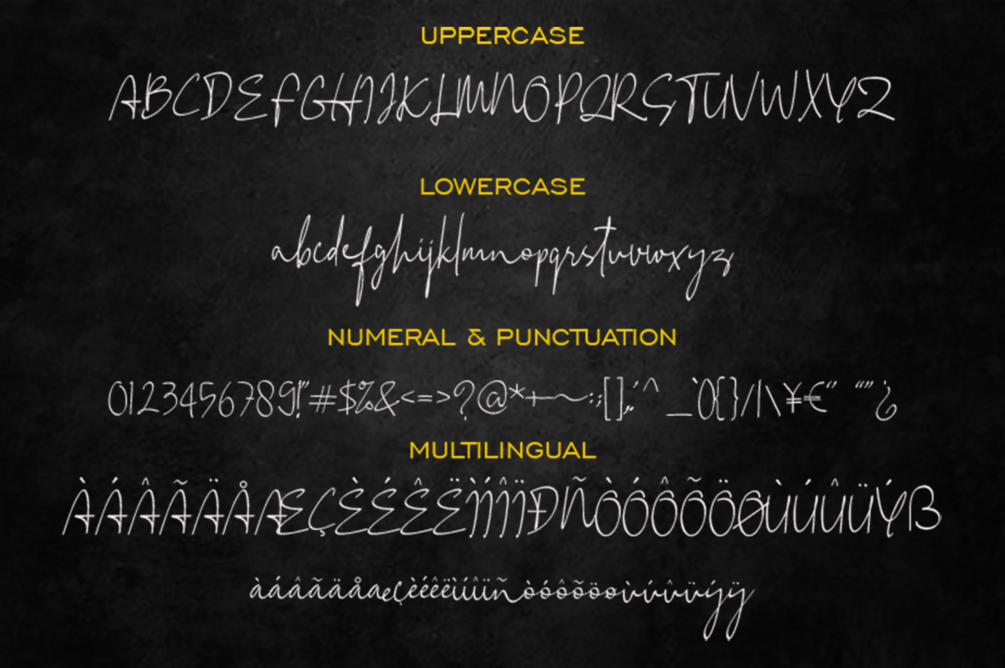 UPPERCASE
ABCDEFGHIJKLMNOPQRSTUVWXYZ
LOWERCASE
abcdefghijklmnopqrstuvwxyz
NUMERAL & PUNCTUATION
0123456789!"#$%&<=>?@*+~:;[]„´^_`(){}/|\¥€“ “”¿
MULTILINGUAL
ÀÁÂÃÄÅÆÇÈÉÊËÌÍÎÏÐÑÒÓÔÕÖØÙÚÛÜÝß
àáâãäåæçèéêëìíîïñòóôõöøùúûüýÿ